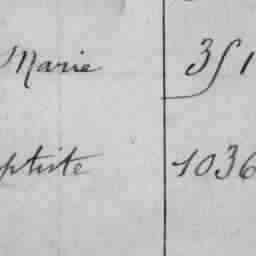 Marie 351
ptiste 1036